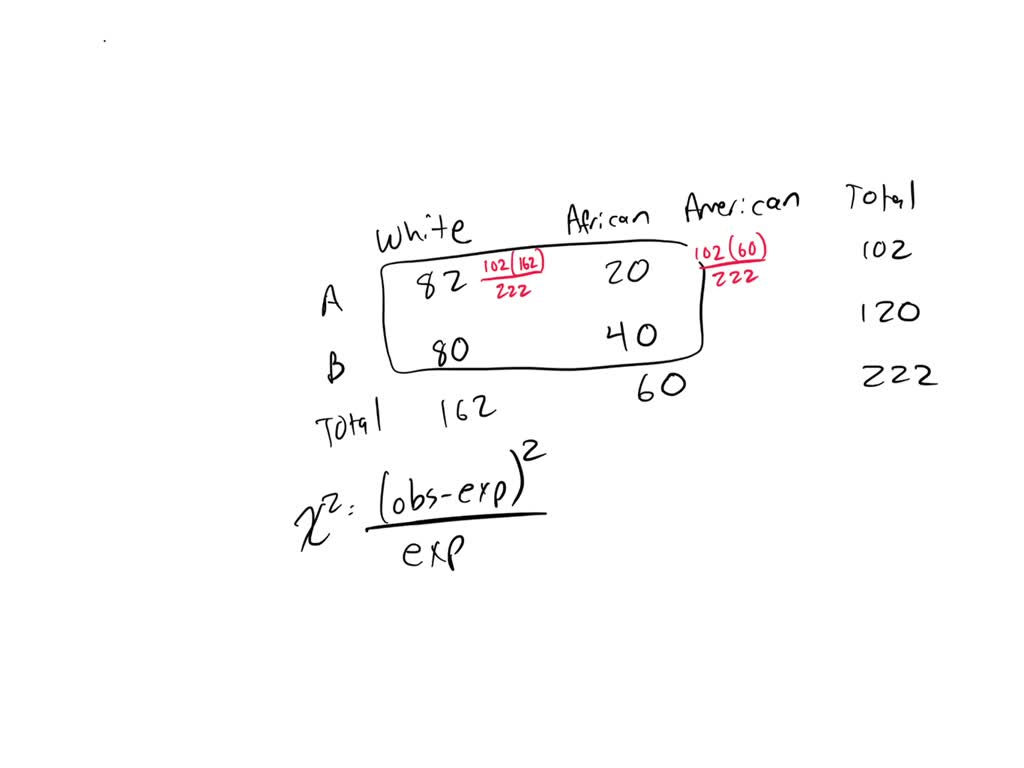 White African American Total
A 82 102(162)/222 20 102(60)/222 102
B 80 40 120
Total 162 60 222
χ²: (obs-exp)²/exp